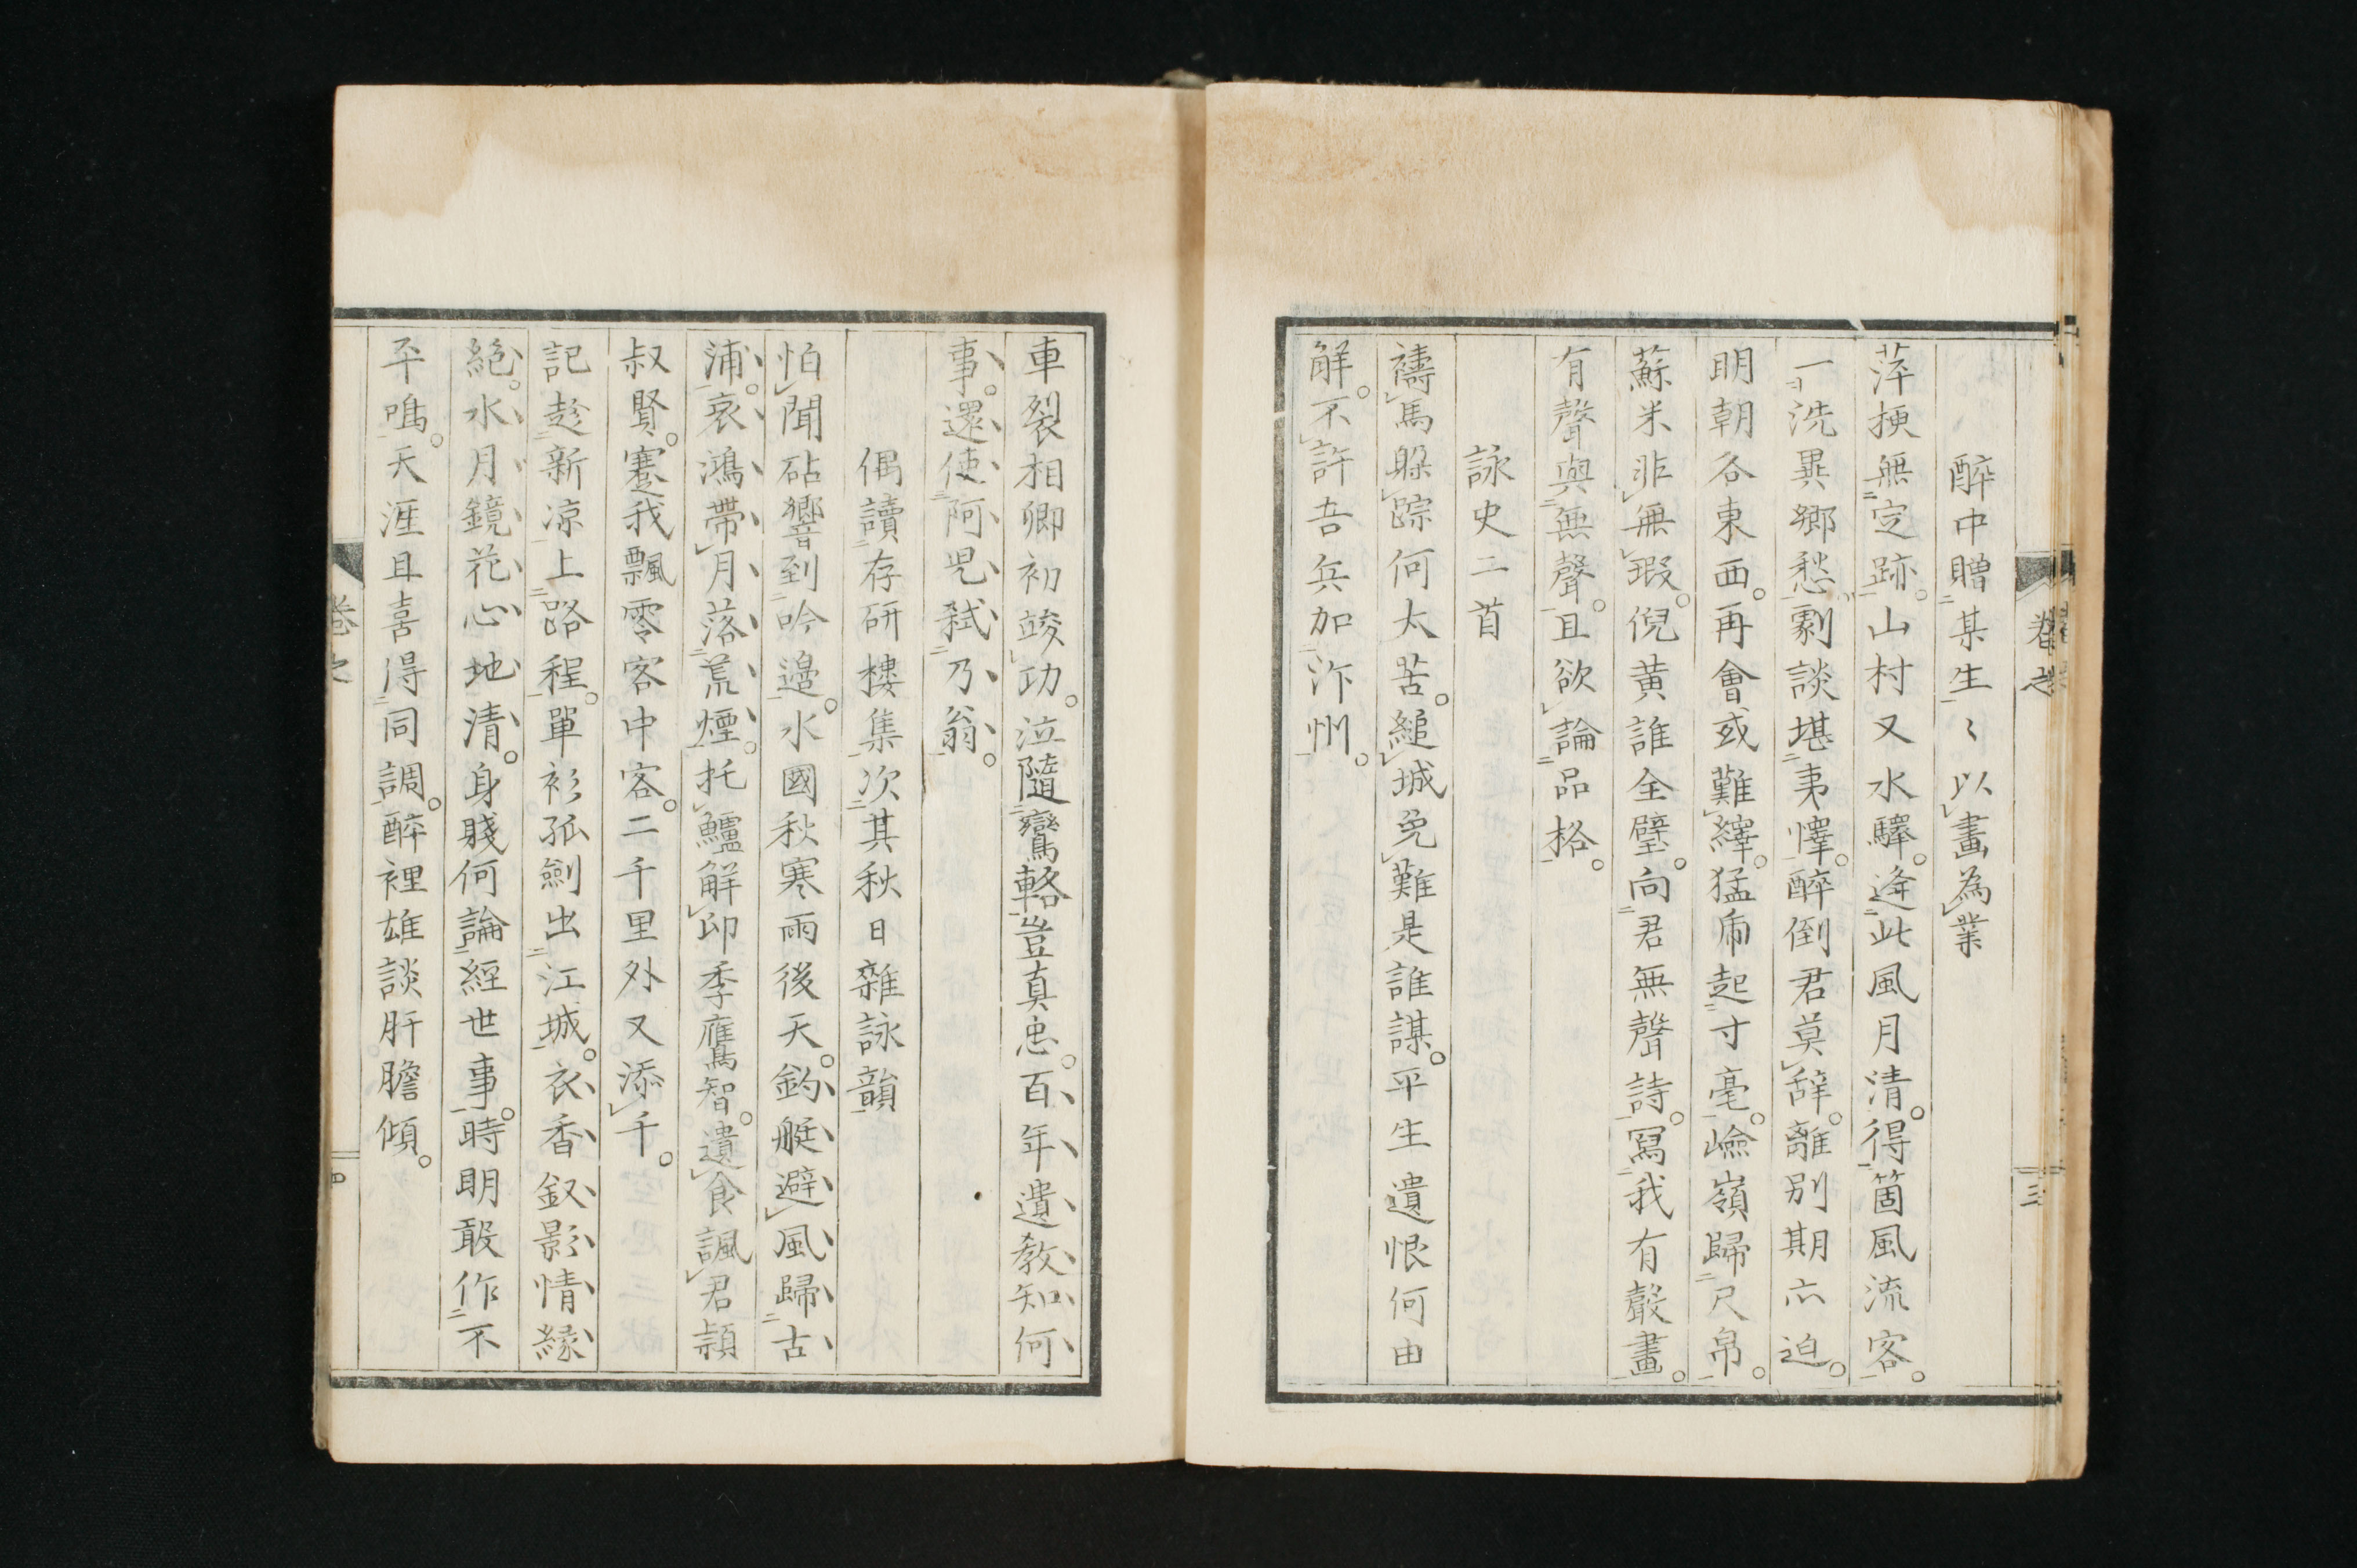 醉中贈某生〻以畫為業
萍梗無定跡。山村又水驛。逢此風月清。得箇風流客。
一洗異鄉愁。劇談堪夷懌。醉倒君莫辞。離別期亦迫。
明朝各東西。再會或難繹。猛虎起寸毫。嶮嶺歸尺帛。
蘇米非無瑕。倪黄誰全璧。向君無聲詩。冩我有聲畫。
有聲與無聲。且欲論品格。
詠史二首
禱馬躲踪何太苦。縋城免難是誰謀。平生遺恨何由
解。不許吾兵加汴州。
卷之
三
車裂相卿初竣功。泣隨鸞輅豈真忠。百年遺教知何
事。還使阿児弑乃翁。
偶讀存研樓集次其秋日雜詠韻
怕聞砧響到吟邊。水國秋寒雨後天。釣艇避風歸古
浦。哀鴻帶月落荒煙。托鱸解印季鷹智。遺食諷君頴
叔賢。蹇我飄零客中客。二千里外又添千。
記趁新凉上路程。單衫孤劍出江城。衣香釵影情緣
絕。水月鏡花心地清。身賤何論經世事。時明敢作不
平鳴。天涯且喜得同調。醉裡雄談肝膽傾。
卷之
四